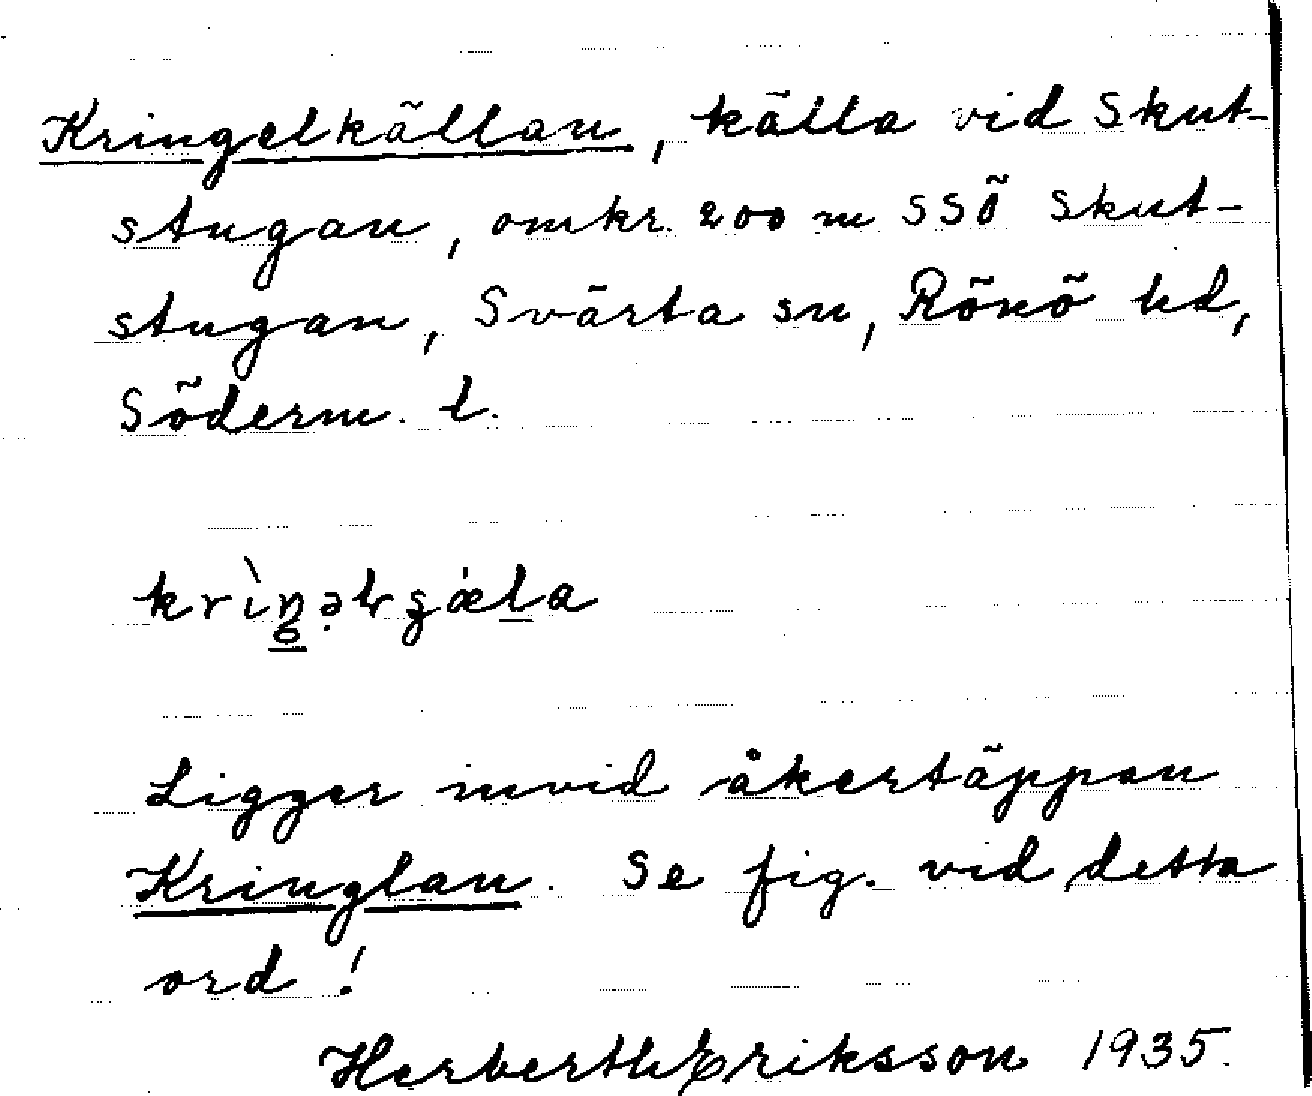 Kringelkällan, källa vid Skut-
stugan, omkr. 200 m SSÖ Skut-
stugan, Svärta sn, Rönö hd,
Söderm. l.
Ligger invid åkertäppan
Kringlan. Se fig. vid detta
ord!
Herberth Eriksson 1935.